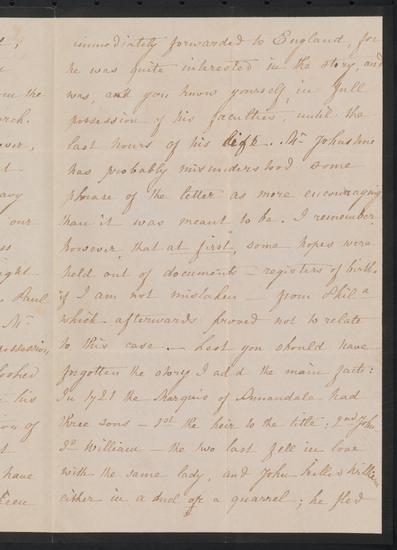 immediately forwarded to England, for
he was quite interested in the story, and
was, and you know yourself, in full
possession of his faculties, until the
last hours of his life. Mr Johnstone
has probably misunderstood some
phrase of the letter as more encouraging
than it was meant to be. I remember
however, that at first, some hopes were
held out of documents – registers of birth,
if I am not mistaken – from Phila
which afterwards proved not to relate
to this case. – Lest you should have
forgotten the story I add the main facts:
In 1721 the Marquis of Annandale had
three sons – 1st the heir to the title; 2nd John
3d William – the two last fell in love
with the same lady, and John killed William
either in a duel or a quarrel; he fled
the
rch.
our
ight
Paul
Mr
possession,
looked
his
ion of
have